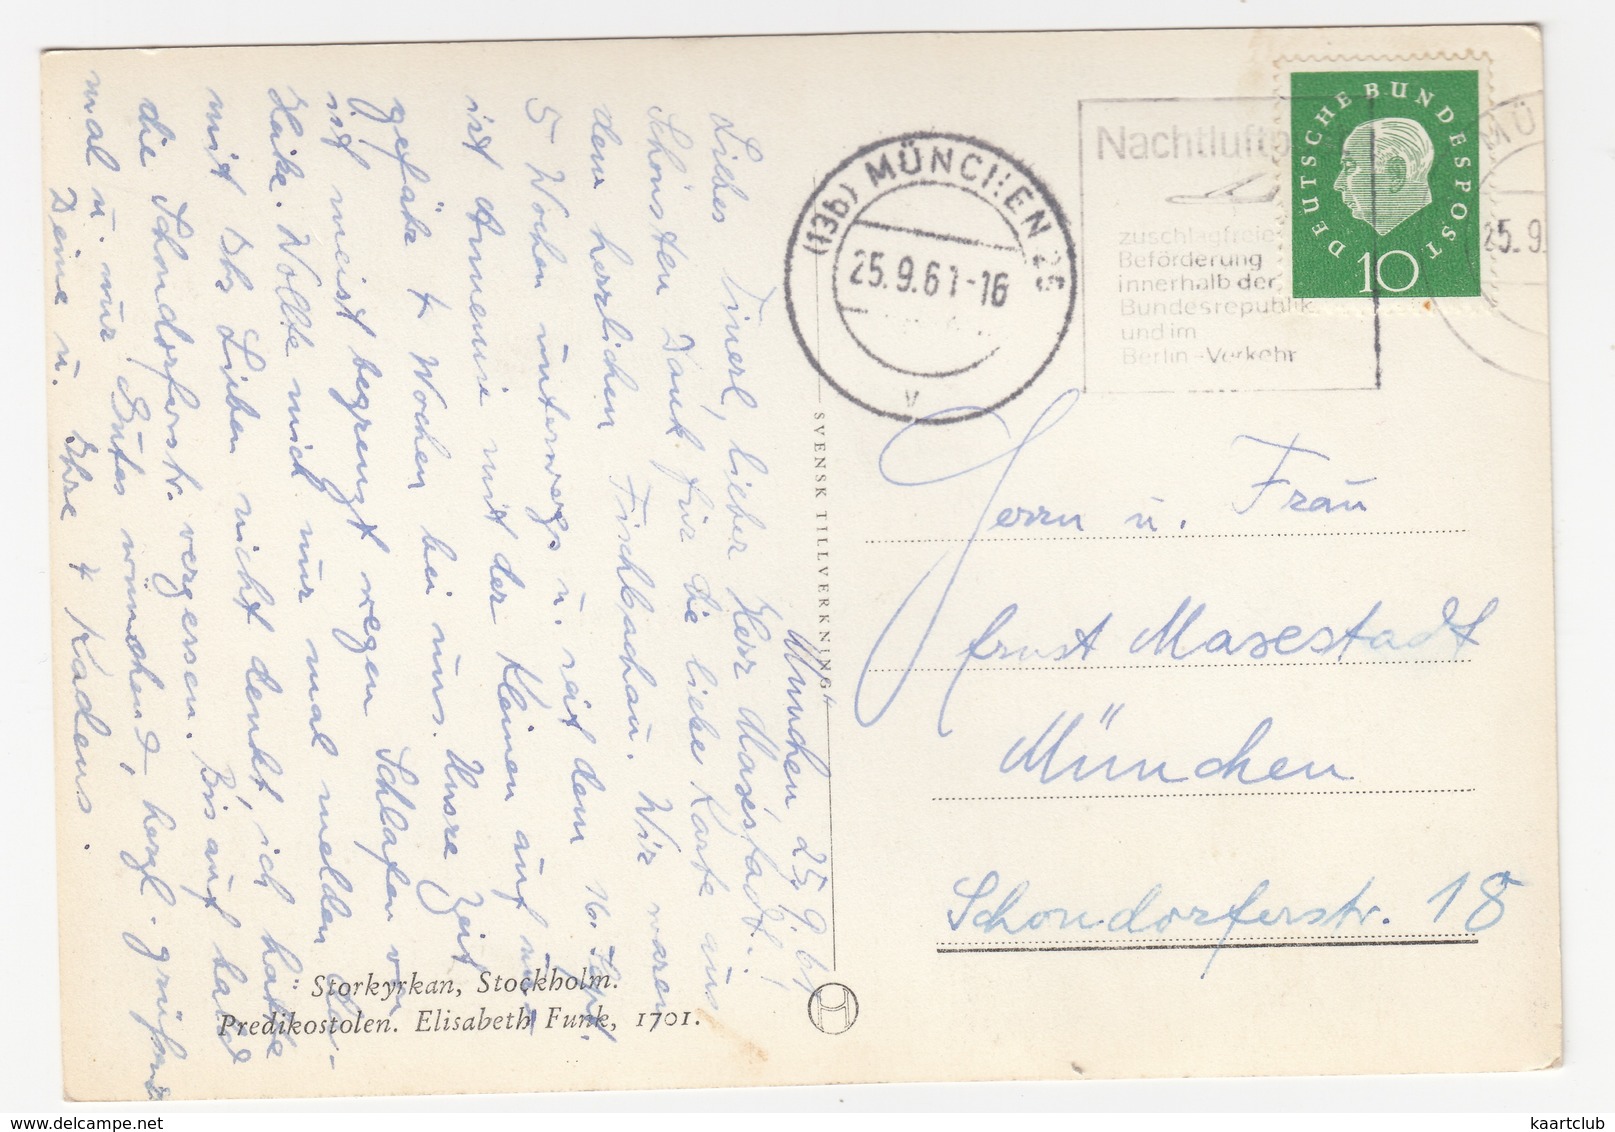 München 25.9.61
Liebes Tinerl, lieber Herr Masestadt!
Schönsten Dank für die liebe Karte aus
dem herrlichen Fischbachau. Wir waren
5 Wochen unterwegs u. seit dem 16. Sept.
ist Annemie mit der Kleinen auf nun
gefähr 4 Wochen bei uns. Unsre Zeit
ist meist begrenzt wegen Schlafen von
Heike. Wollte mich nur mal melden da-
mit Ihr Lieben nicht denkt, ich hätte
die Schondorferstr. vergessen. Bis auf bald
mal u. nur Gutes wünschend, herzl. grüßend
Deine u. Ihre 4 Kadens.
Storkyrkan, Stockholm.
Predikostolen. Elisabeth Funk, 1701.
SVENSK TILLVERKNING
(13b) MÜNCHEN 25
25.9.61-16
v
Nachtluftp
zuschlagfreie
Beförderung
innerhalb der
Bundesrepublik
und im
Berlin-Verkehr
DEUTSCHE BUNDESPOST
10
MÜ
25.9.
Herrn u. Frau
Ernst Masestadt
München
Schondorferstr. 18
kaartclub